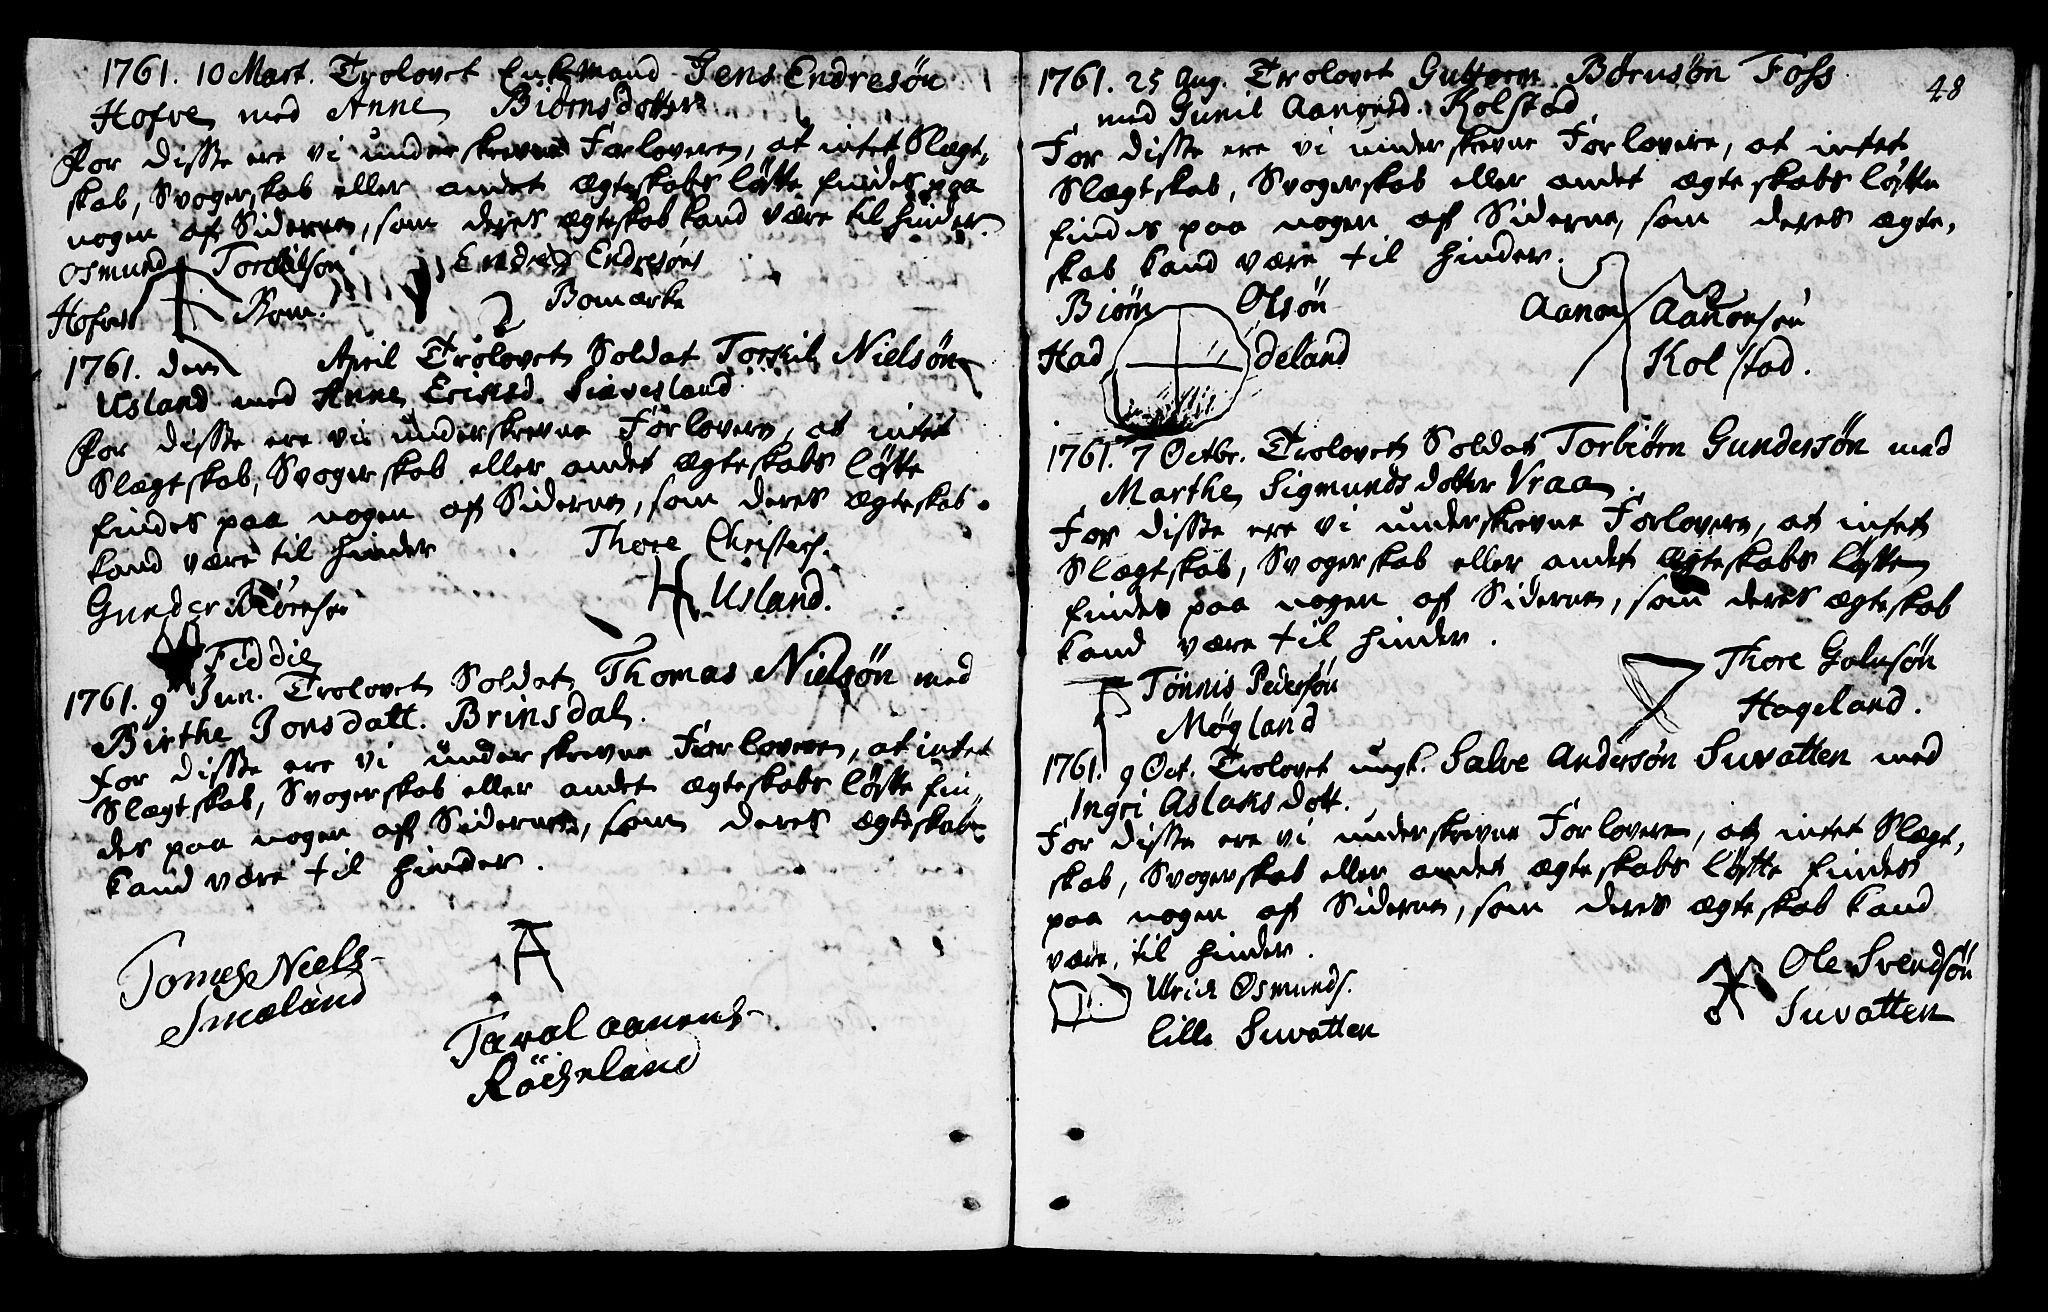 1761. 10 Mart. Trolovet Enkemand Jens Endresøn
Hofve med Anne Biørnsdotter
For disse ere vi underskrevne Forlovere, at intet Slægt,
skab, Svogerskab eller andet ægteskabs løfte findes paa
nogen af Siderne, som deres ægteskab kand være til hinder.
Osmund Endres Endresøns
Hofve Bomærke
1761. den April Trolovet Soldat Torkil Nielsøn
Usland med Anne Ericsd.
For disse ere vi underskrevne Forlovere, at intet
Slægtskab, Svogerskab eller andet ægteskabs løfte
findes paa nogen af Siderne, som deres ægteskab
kand være til hinder
Thore Christens.
Usland.
Gunder Biørensen
Feddie
1761. 9 Jun. Trolovet Soldat Thomas Nielsøn med
Birthe Jonsdatt. Brinsdal.
For disse ere vi underskrevne Forlovere, at intet
Slægtskab, Svogerskab eller andet ægteskabs løfte fin,
des paa nogen af Siderne, som deres ægteskab
kand være til hinder.
Tomes Niels
Smæland
A
Taral Aanens
48
1761. 25 Aug. Trolovet Guttorm Børnsøn Foss
med Gunil Aanonsd. Kolstad
For disse ere vi underskrevne Forlovere, at intet
Slægtskab, Svogerskab eller andet ægteskabs løfte
findes paa nogen af Siderne, som deres ægte,
skab kand være til hinder.
Biørn Olsøn Aanon Aanonsøn
Had deland Kolstad.
1761. 7 Octbr. Trolovet Soldat Torbiørn Gundersøn med
Marthe Sigmunds dotter Vraa.
For disse ere vi underskrevne Forlovere, at intet
Slægtskab, Svogerskab eller andet ægteskabs løfte
findes paa nogen af Siderne, som deres ægteskab
kand være til hinder.
Tønnis Pedersøn
Møgland
Thore
Hageland.
1761. 9 Oct. Trolovet ungk. Salve Andersøn Suvatten med
Ingri Aslaks dott.
For disse ere vi underskrevne Forlovere, at intet Slægt,
skab, Svogerskab eller andet ægteskabs løfte findes
paa nogen af Siderne, som deres ægteskab kand
være til hinder.
Ulrich Osmunds.
lille Suvatten
Ole Svendsøn
Suvatten